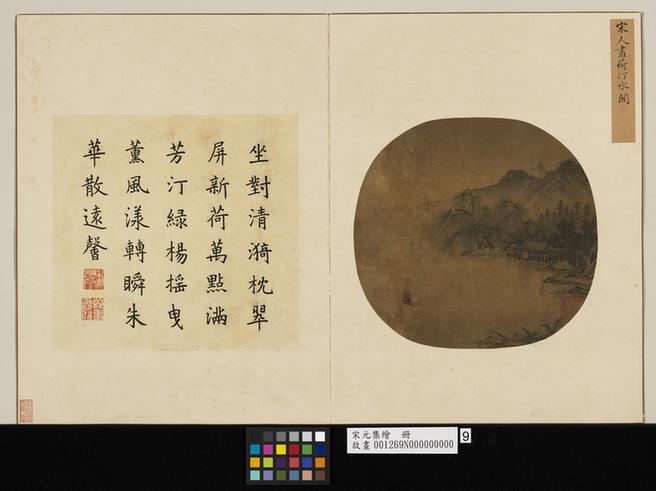 宋人畫荷汀水閣
坐對清漪枕翠
屏新荷萬點滿
芳汀綠楊搖曳
薰風漾轉瞬朱
華散遠馨
宋元集繪 冊
故畫 001269N000000000
9